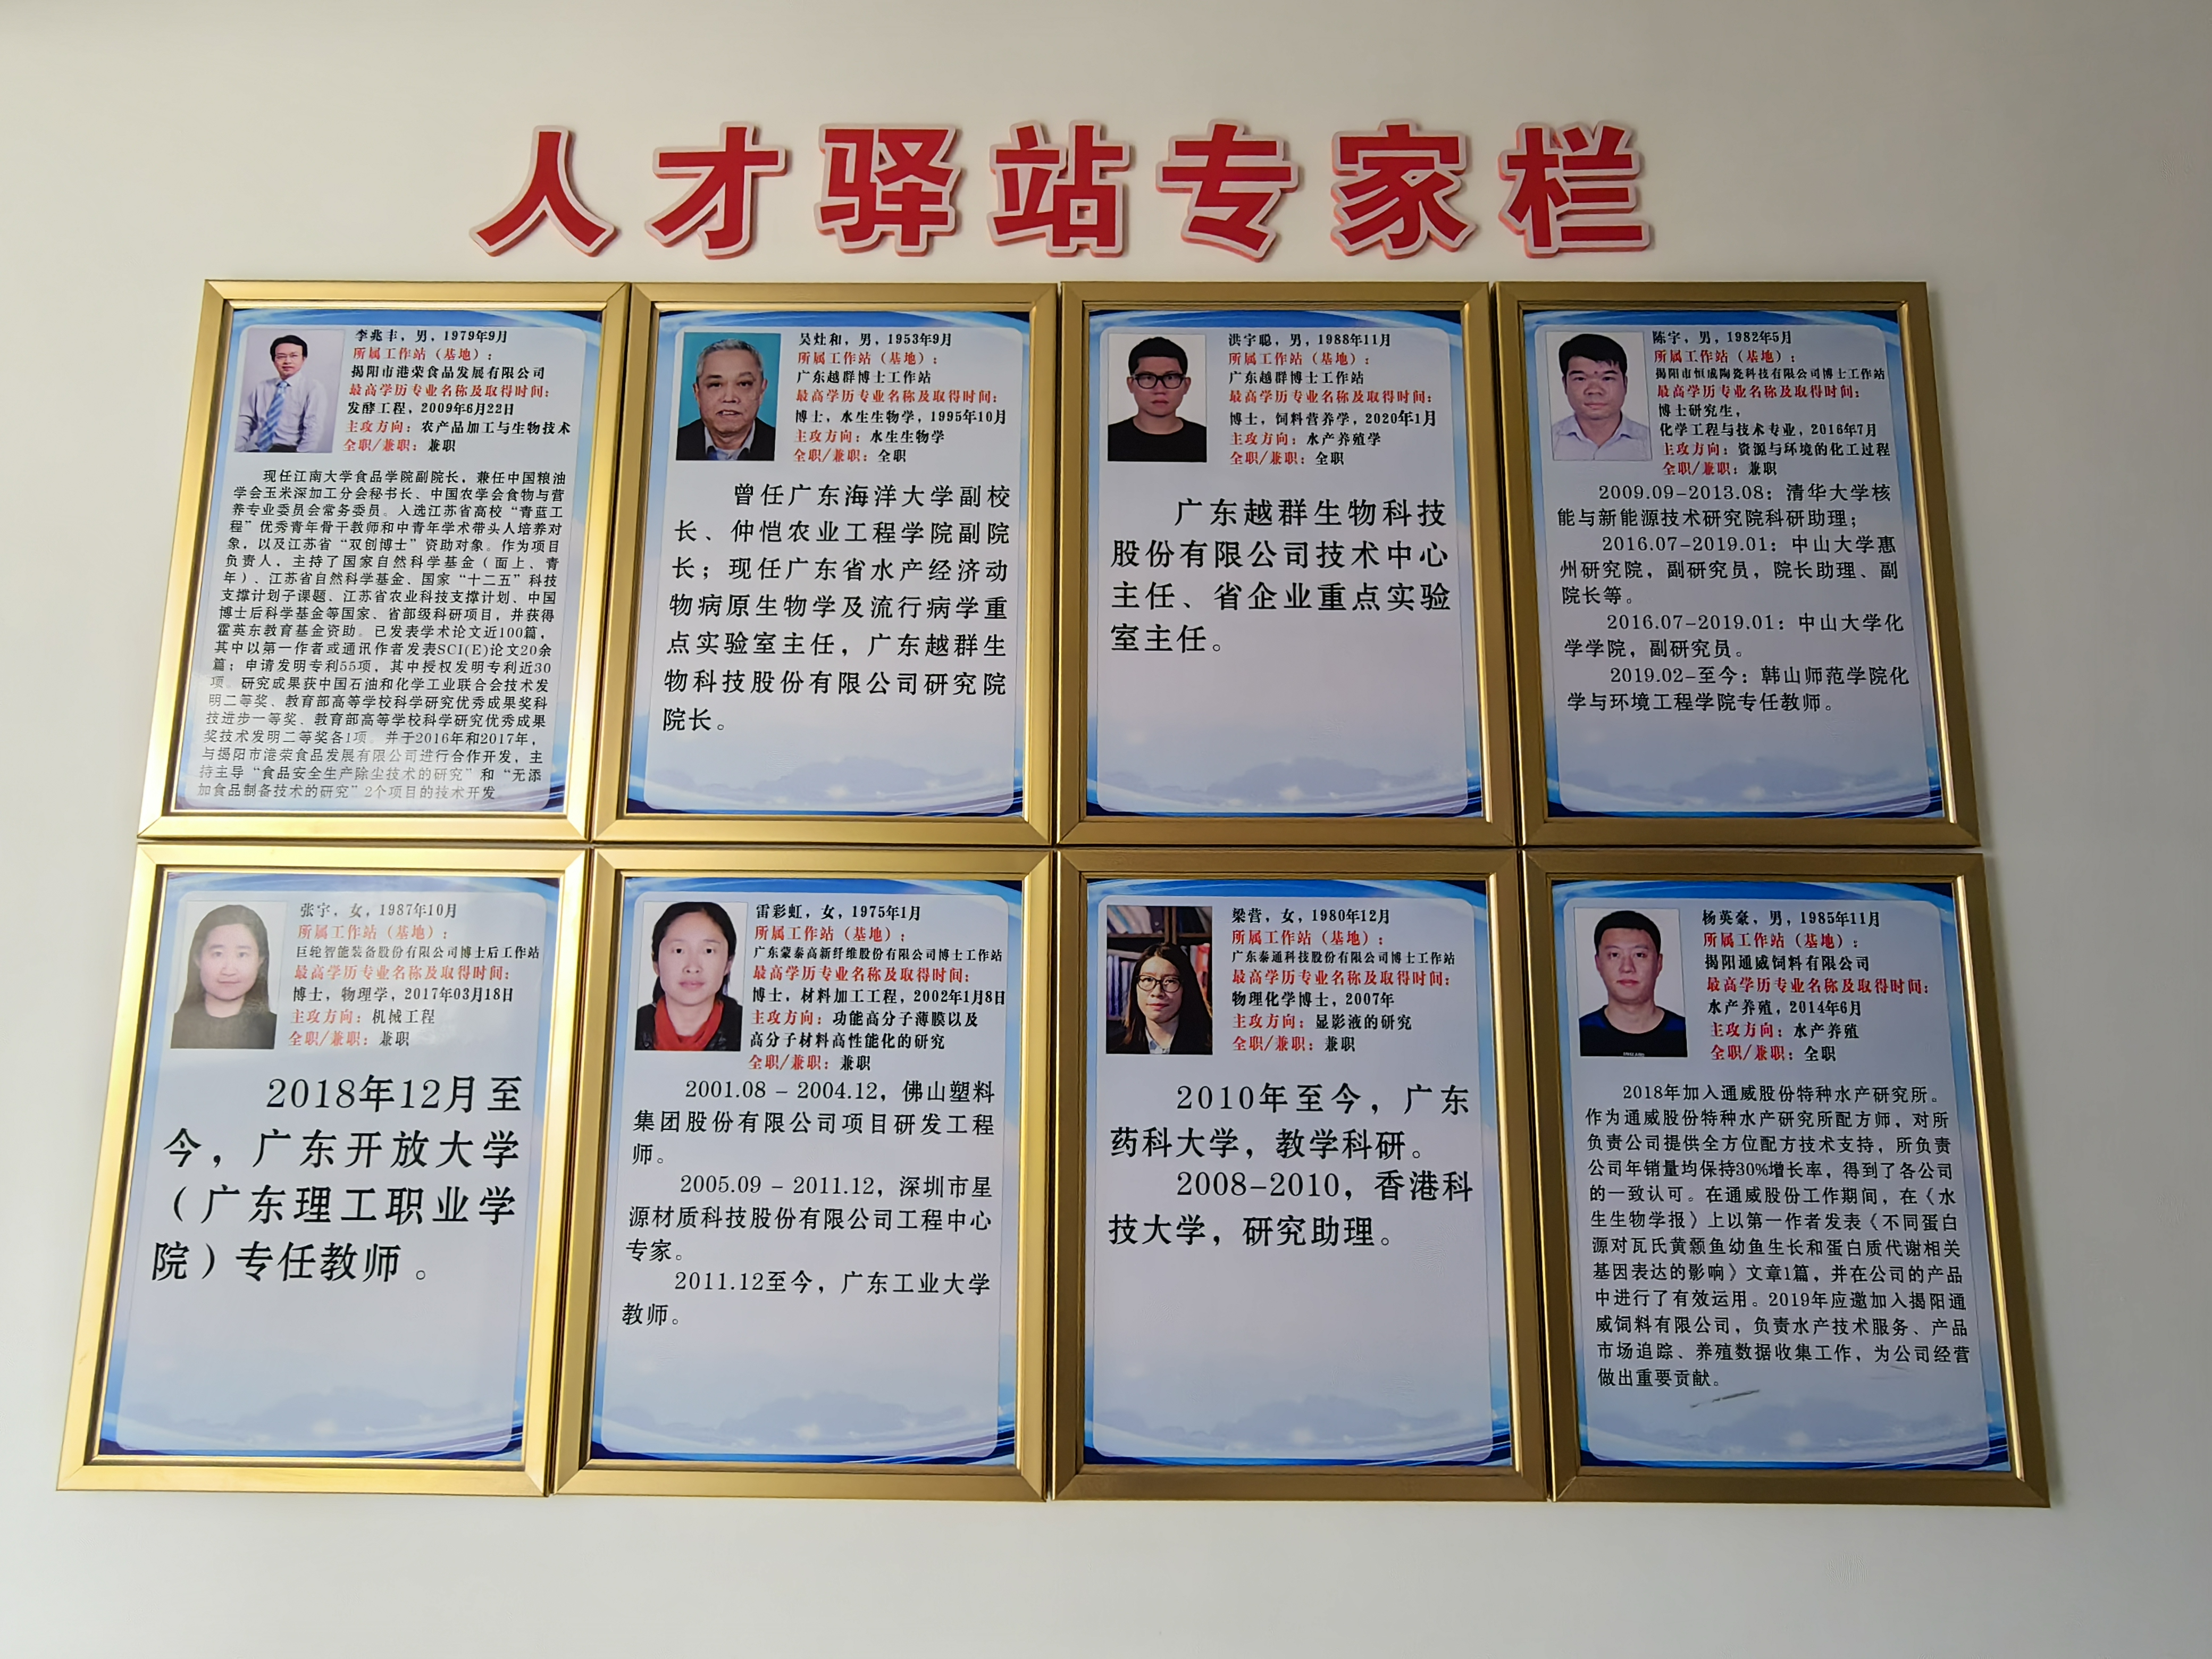 人才驿站专家栏
李兆丰，男，1979年9月
所属工作站（基地）：
揭阳市港荣食品发展有限公司
最高学历专业名称及取得时间：
发酵工程，2009年6月22日
主攻方向：农产品加工与生物技术
全职/兼职：兼职
现任江南大学食品学院副院长，兼任中国粮油
学会玉米深加工分会秘书长、中国农学会食物与营
养专业委员会常务委员。入选江苏省高校“青蓝工
程”优秀青年骨干教师和中青年学术带头人培养对
象，以及江苏省“双创博士”资助对象。作为项目
负责人，主持了国家自然科学基金（面上、青
年）、江苏省自然科学基金、国家“十二五”科技
支撑计划子课题、江苏省农业科技支撑计划、中国
博士后科学基金等国家、省部级科研项目，并获得
霍英东教育基金资助。已发表学术论文近100篇，
其中以第一作者或通讯作者发表SCI(E)论文20余
篇；申请发明专利55项，其中授权发明专利近30
项。研究成果获中国石油和化学工业联合会技术发
明二等奖、教育部高等学校科学研究优秀成果奖科
技进步一等奖、教育部高等学校科学研究优秀成果
奖技术发明二等奖各1项。并于2016年和2017年，
与揭阳市港荣食品发展有限公司进行合作开发，主
持主导“食品安全生产除尘技术的研究”和“无添
加食品制备技术的研究”2个项目的技术开发。
吴灶和，男，1953年9月
所属工作站（基地）：
广东越群博士工作站
最高学历专业名称及取得时间：
博士，水生生物学，1995年10月
主攻方向：水生生物学
全职/兼职：全职
曾任广东海洋大学副校
长、仲恺农业工程学院副院
长；现任广东省水产经济动
物病原生物学及流行病学重
点实验室主任，广东越群生
物科技股份有限公司研究院
院长。
洪宇聪，男，1988年11月
所属工作站（基地）：
广东越群博士工作站
最高学历专业名称及取得时间：
博士，饲料营养学，2020年1月
主攻方向：水产养殖学
全职/兼职：全职
广东越群生物科技
股份有限公司技术中心
主任、省企业重点实验
室主任。
陈宇，男，1982年5月
所属工作站（基地）：
揭阳市恒成陶瓷科技有限公司博士工作站
最高学历专业名称及取得时间：
博士研究生，
化学工程与技术专业，2016年7月
主攻方向：资源与环境的化工过程
全职/兼职：兼职
2009.09-2013.08：清华大学核
能与新能源技术研究院科研助理；
2016.07-2019.01：中山大学惠
州研究院，副研究员，院长助理、副
院长等。
2016.07-2019.01：中山大学化
学学院，副研究员。
2019.02-至今：韩山师范学院化
学与环境工程学院专任教师。
张宇，女，1987年10月
所属工作站（基地）：
巨轮智能装备股份有限公司博士后工作站
最高学历专业名称及取得时间：
博士，物理学，2017年03月18日
主攻方向：机械工程
全职/兼职：兼职
2018年12月至
今，广东开放大学
（广东理工职业学
院）专任教师。
雷彩虹，女，1975年1月
所属工作站（基地）：
广东蒙泰高新纤维股份有限公司博士工作站
最高学历专业名称及取得时间：
博士，材料加工工程，2002年1月8日
主攻方向：功能高分子薄膜以及
高分子材料高性能化的研究
全职/兼职：兼职
2001.08－2004.12，佛山塑料
集团股份有限公司项目研发工程
师。
2005.09－2011.12，深圳市星
源材质科技股份有限公司工程中心
专家。
2011.12至今，广东工业大学
教师。
梁营，女，1980年12月
所属工作站（基地）：
广东泰通科技股份有限公司博士工作站
最高学历专业名称及取得时间：
物理化学博士，2007年
主攻方向：显影液的研究
全职/兼职：兼职
2010年至今，广东
药科大学，教学科研。
2008-2010，香港科
技大学，研究助理。
杨英豪，男，1985年11月
所属工作站（基地）：
揭阳通威饲料有限公司
最高学历专业名称及取得时间：
水产养殖，2014年6月
主攻方向：水产养殖
全职/兼职：全职
2018年加入通威股份特种水产研究所。
作为通威股份特种水产研究所配方师，对所
负责公司提供全方位配方技术支持，所负责
公司年销量均保持30%增长率，得到了各公司
的一致认可。在通威股份工作期间，在《水
生生物学报》上以第一作者发表《不同蛋白
源对瓦氏黄颡鱼幼鱼生长和蛋白质代谢相关
基因表达的影响》文章1篇，并在公司的产品
中进行了有效运用。2019年应邀加入揭阳通
威饲料有限公司，负责水产技术服务、产品
市场追踪、养殖数据收集工作，为公司经营
做出重要贡献。